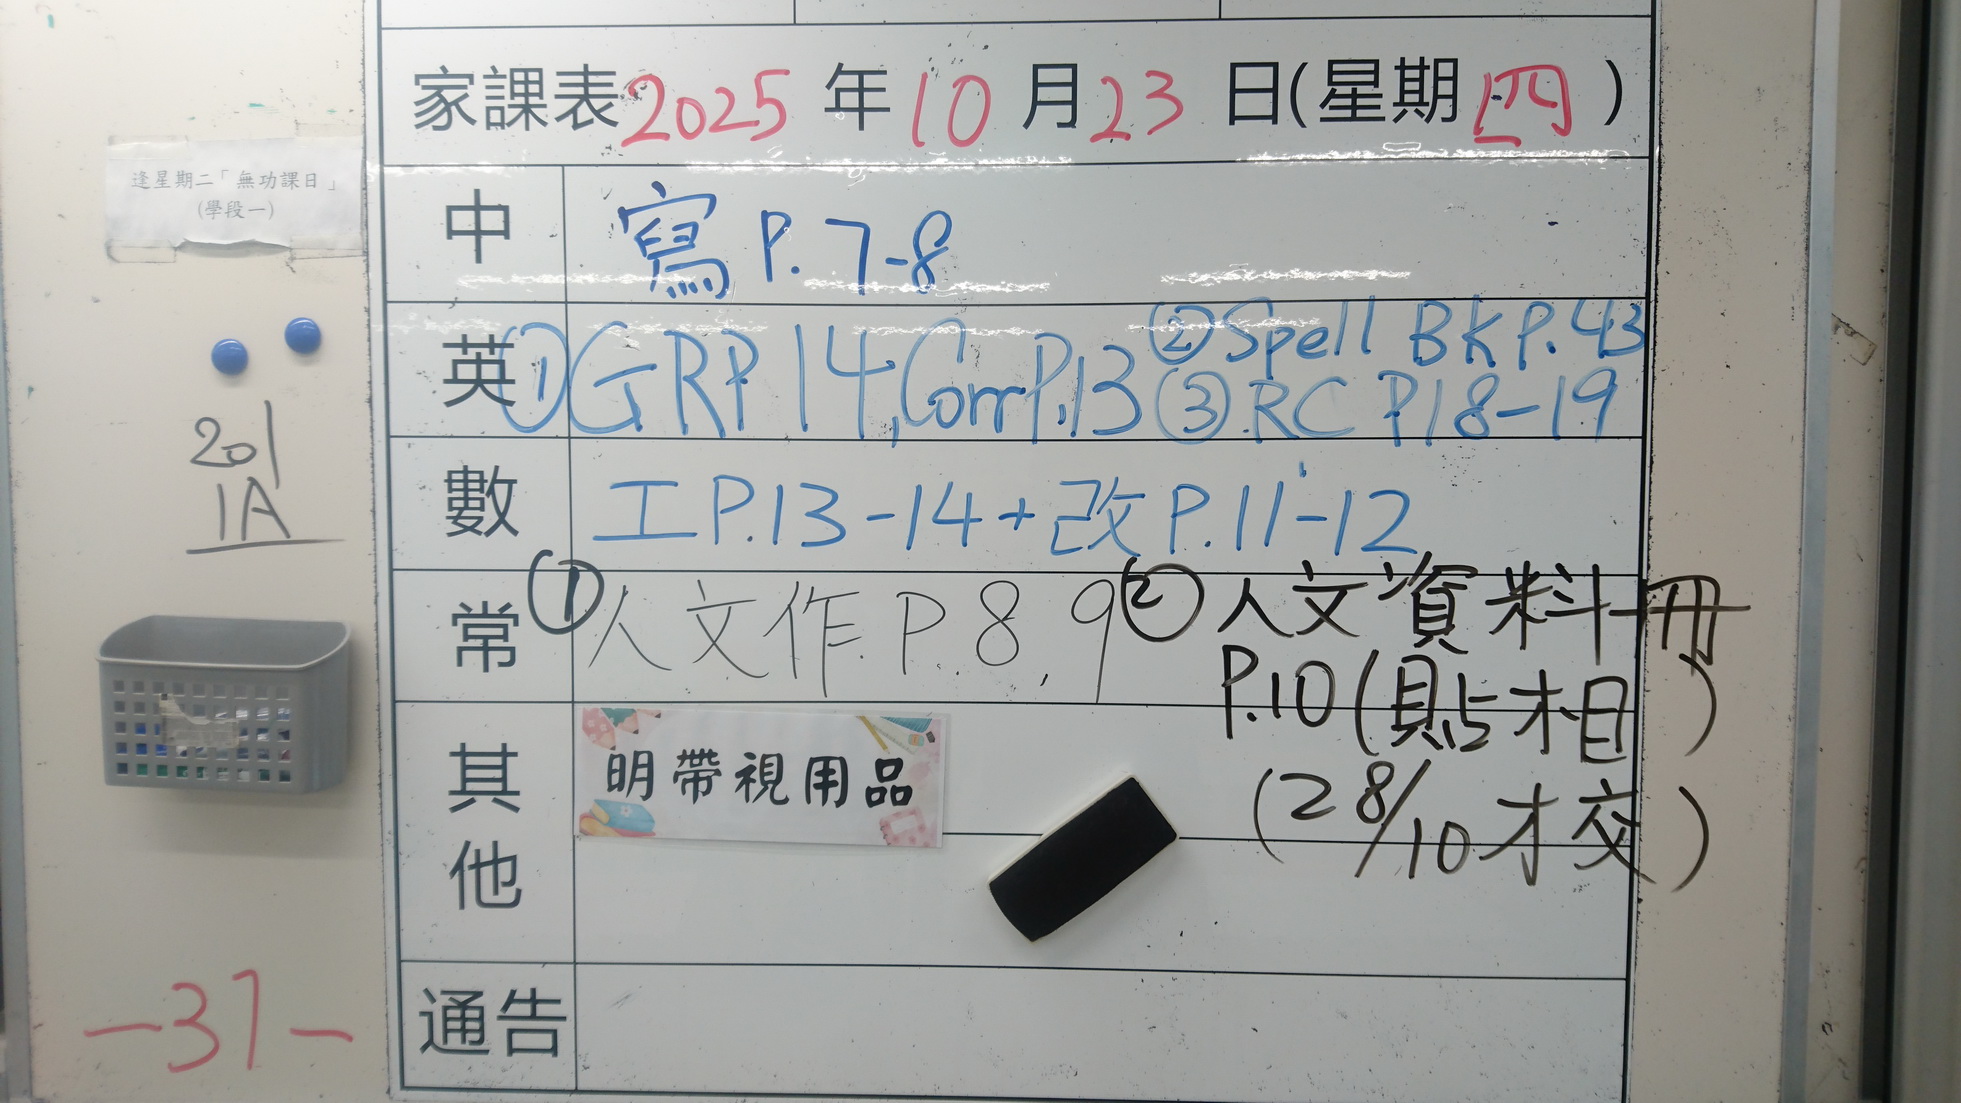 家課表2025年10月23日(星期四)
逢星期二「無功課日」
(學段一)
中 寫 P. 7-8
英 ①GRP14, Corr P.13 ②Spell BK P. 43
③RC P18-19
數 工P.13-14+改P.11-12
常 ①人文作.P.8, 9 ②人文資料冊
P.10(貼相)
(28/10才交)
其他 明帶視用品
通告
201
1A
-37-